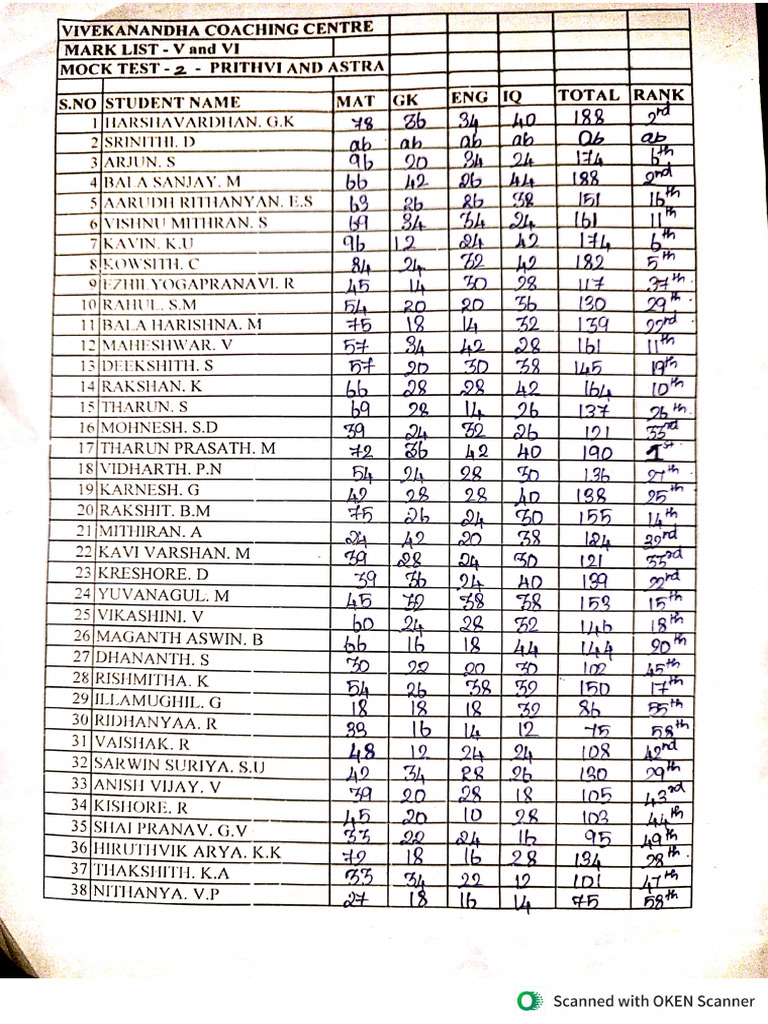 VIVEKANANDHA COACHING CENTRE
MARK LIST - V and VI
MOCK TEST - 2 - PRITHVI AND ASTRA
S.NO STUDENT NAME MAT GK ENG IQ TOTAL RANK
1 HARSHAVARDHAN. G.K 78 36 34 40 188 2nd
2 SRINITHI. D ab ab ab ab ab ab
3 ARJUN. S 96 20 34 24 174 6th
4 BALA SANJAY. M 66 42 26 44 188 2nd
5 AARUDH RITHANYAN. E.S 63 26 26 38 151 16th
6 VISHNU MITHRAN. S 69 34 34 24 161 11th
7 KAVIN. K.U 96 12 24 42 174 6th
8 KOWSITH. C 84 24 32 42 182 5th
9 EZHILYOGAPRANAVI. R 45 14 30 28 117 37th
10 RAHUL. S.M 54 20 20 36 130 29th
11 BALA HARISHNA. M 75 18 14 32 139 22rd
12 MAHESHWAR. V 57 34 42 28 161 11th
13 DEEKSHITH. S 57 20 30 38 145 19th
14 RAKSHAN. K 66 28 28 42 164 10th
15 THARUN. S 69 28 14 26 137 26th
16 MOHNESH. S.D 39 24 32 26 121 33rd
17 THARUN PRASATH. M 72 36 42 40 190 1st
18 VIDHARTH. P.N 54 24 28 30 136 27th
19 KARNESH. G 42 28 28 40 138 25th
20 RAKSHIT. B.M 75 26 24 30 155 14th
21 MITHIRAN. A 24 42 20 38 124 32rd
22 KAVI VARSHAN. M 39 28 24 30 121 33rd
23 KRESHORE. D 39 36 24 40 139 22rd
24 YUVANAGUL. M 45 32 38 38 153 15th
25 VIKASHINI. V 60 24 28 32 146 18th
26 MAGANTH ASWIN. B 66 16 18 44 144 20th
27 DHANANTH. S 30 22 20 30 102 45th
28 RISHMITHA. K 54 26 38 32 150 17th
29 ILLAMUGHIL. G 18 18 18 32 86 55th
30 RIDHANYAA. R 33 16 14 12 75 58th
31 VAISHAK. R 48 12 24 24 108 42rd
32 SARWIN SURIYA. S.U 42 34 28 26 130 29th
33 ANISH VIJAY. V 39 20 28 18 105 43rd
34 KISHORE. R 45 20 10 28 103 44th
35 SHAI PRANAV. G.V 33 22 24 16 95 49th
36 HIRUTHVIK ARYA. K.K 72 18 16 28 134 28th
37 THAKSHITH. K.A 33 34 22 12 101 47th
38 NITHANYA. V.P 27 18 16 14 75 58th
Scanned with OKEN Scanner